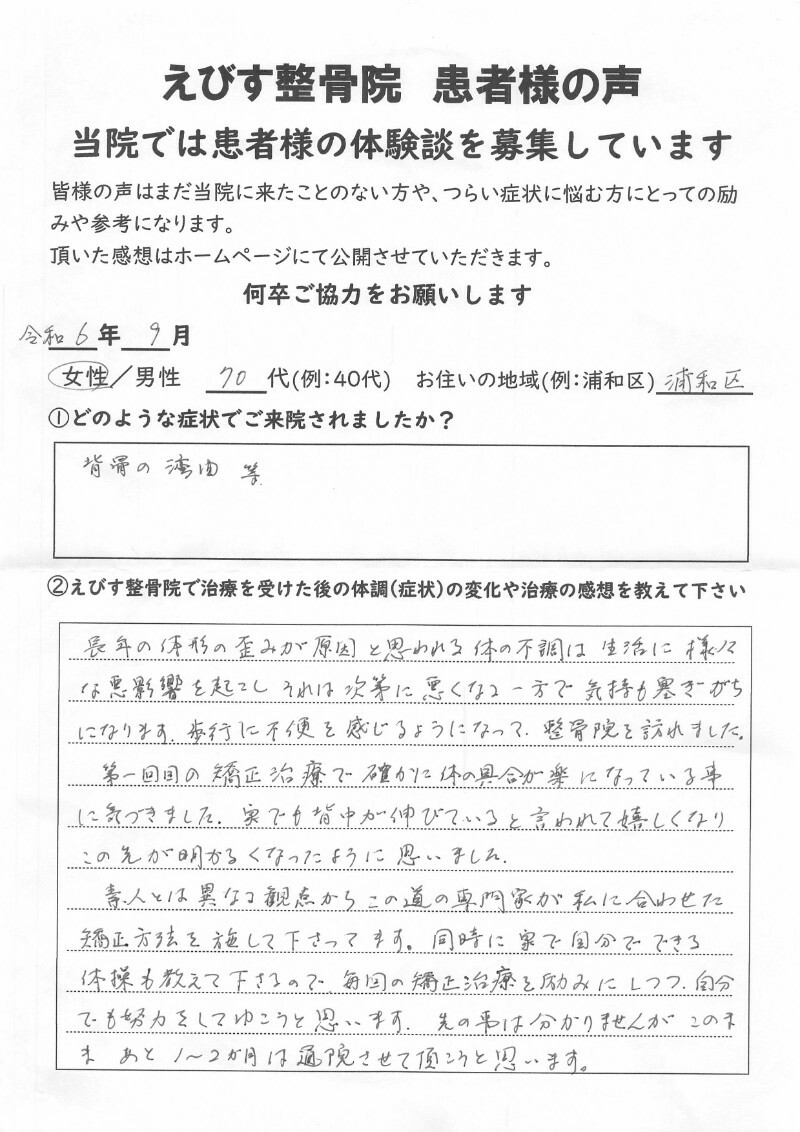 えびす整骨院 患者様の声
当院では患者様の体験談を募集しています
皆様の声はまだ当院に来たことのない方や、つらい症状に悩む方にとっての励
みや参考になります。
頂いた感想はホームページにて公開させていただきます。
何卒ご協力をお願いします
令和6年 9月
女性/男性 70代(例:40代) お住いの地域(例:浦和区) 浦和区
①どのような症状でご来院されましたか?
背骨の湾曲 等
②えびす整骨院で治療を受けた後の体調(症状)の変化や治療の感想を教えて下さい
長年の体形の歪みが原因と思われる体の不調は生活に様々
な悪影響を起こしそれは次第に悪くなる一方で気持も塞ぎがち
になります。歩行に不便を感じるようになって、整骨院を訪れました。
第一回目の矯正治療で確かに体の具合が楽になっている事
に気づきました。家でも背中が伸びていると言われて嬉しくなり
この先が明かるくなったように思いました。
素人とは異なる観点からこの道の専門家が私に合わせた
矯正方法を施して下さってます。同時に家で自分でできる
体操も教えて下さるので、毎回の矯正治療を励みにしつつ、自分
でも努力をしてゆこうと思います。先の事は分かりませんがこのま
ま あと1〜2か月は通院させて頂こうと思います。